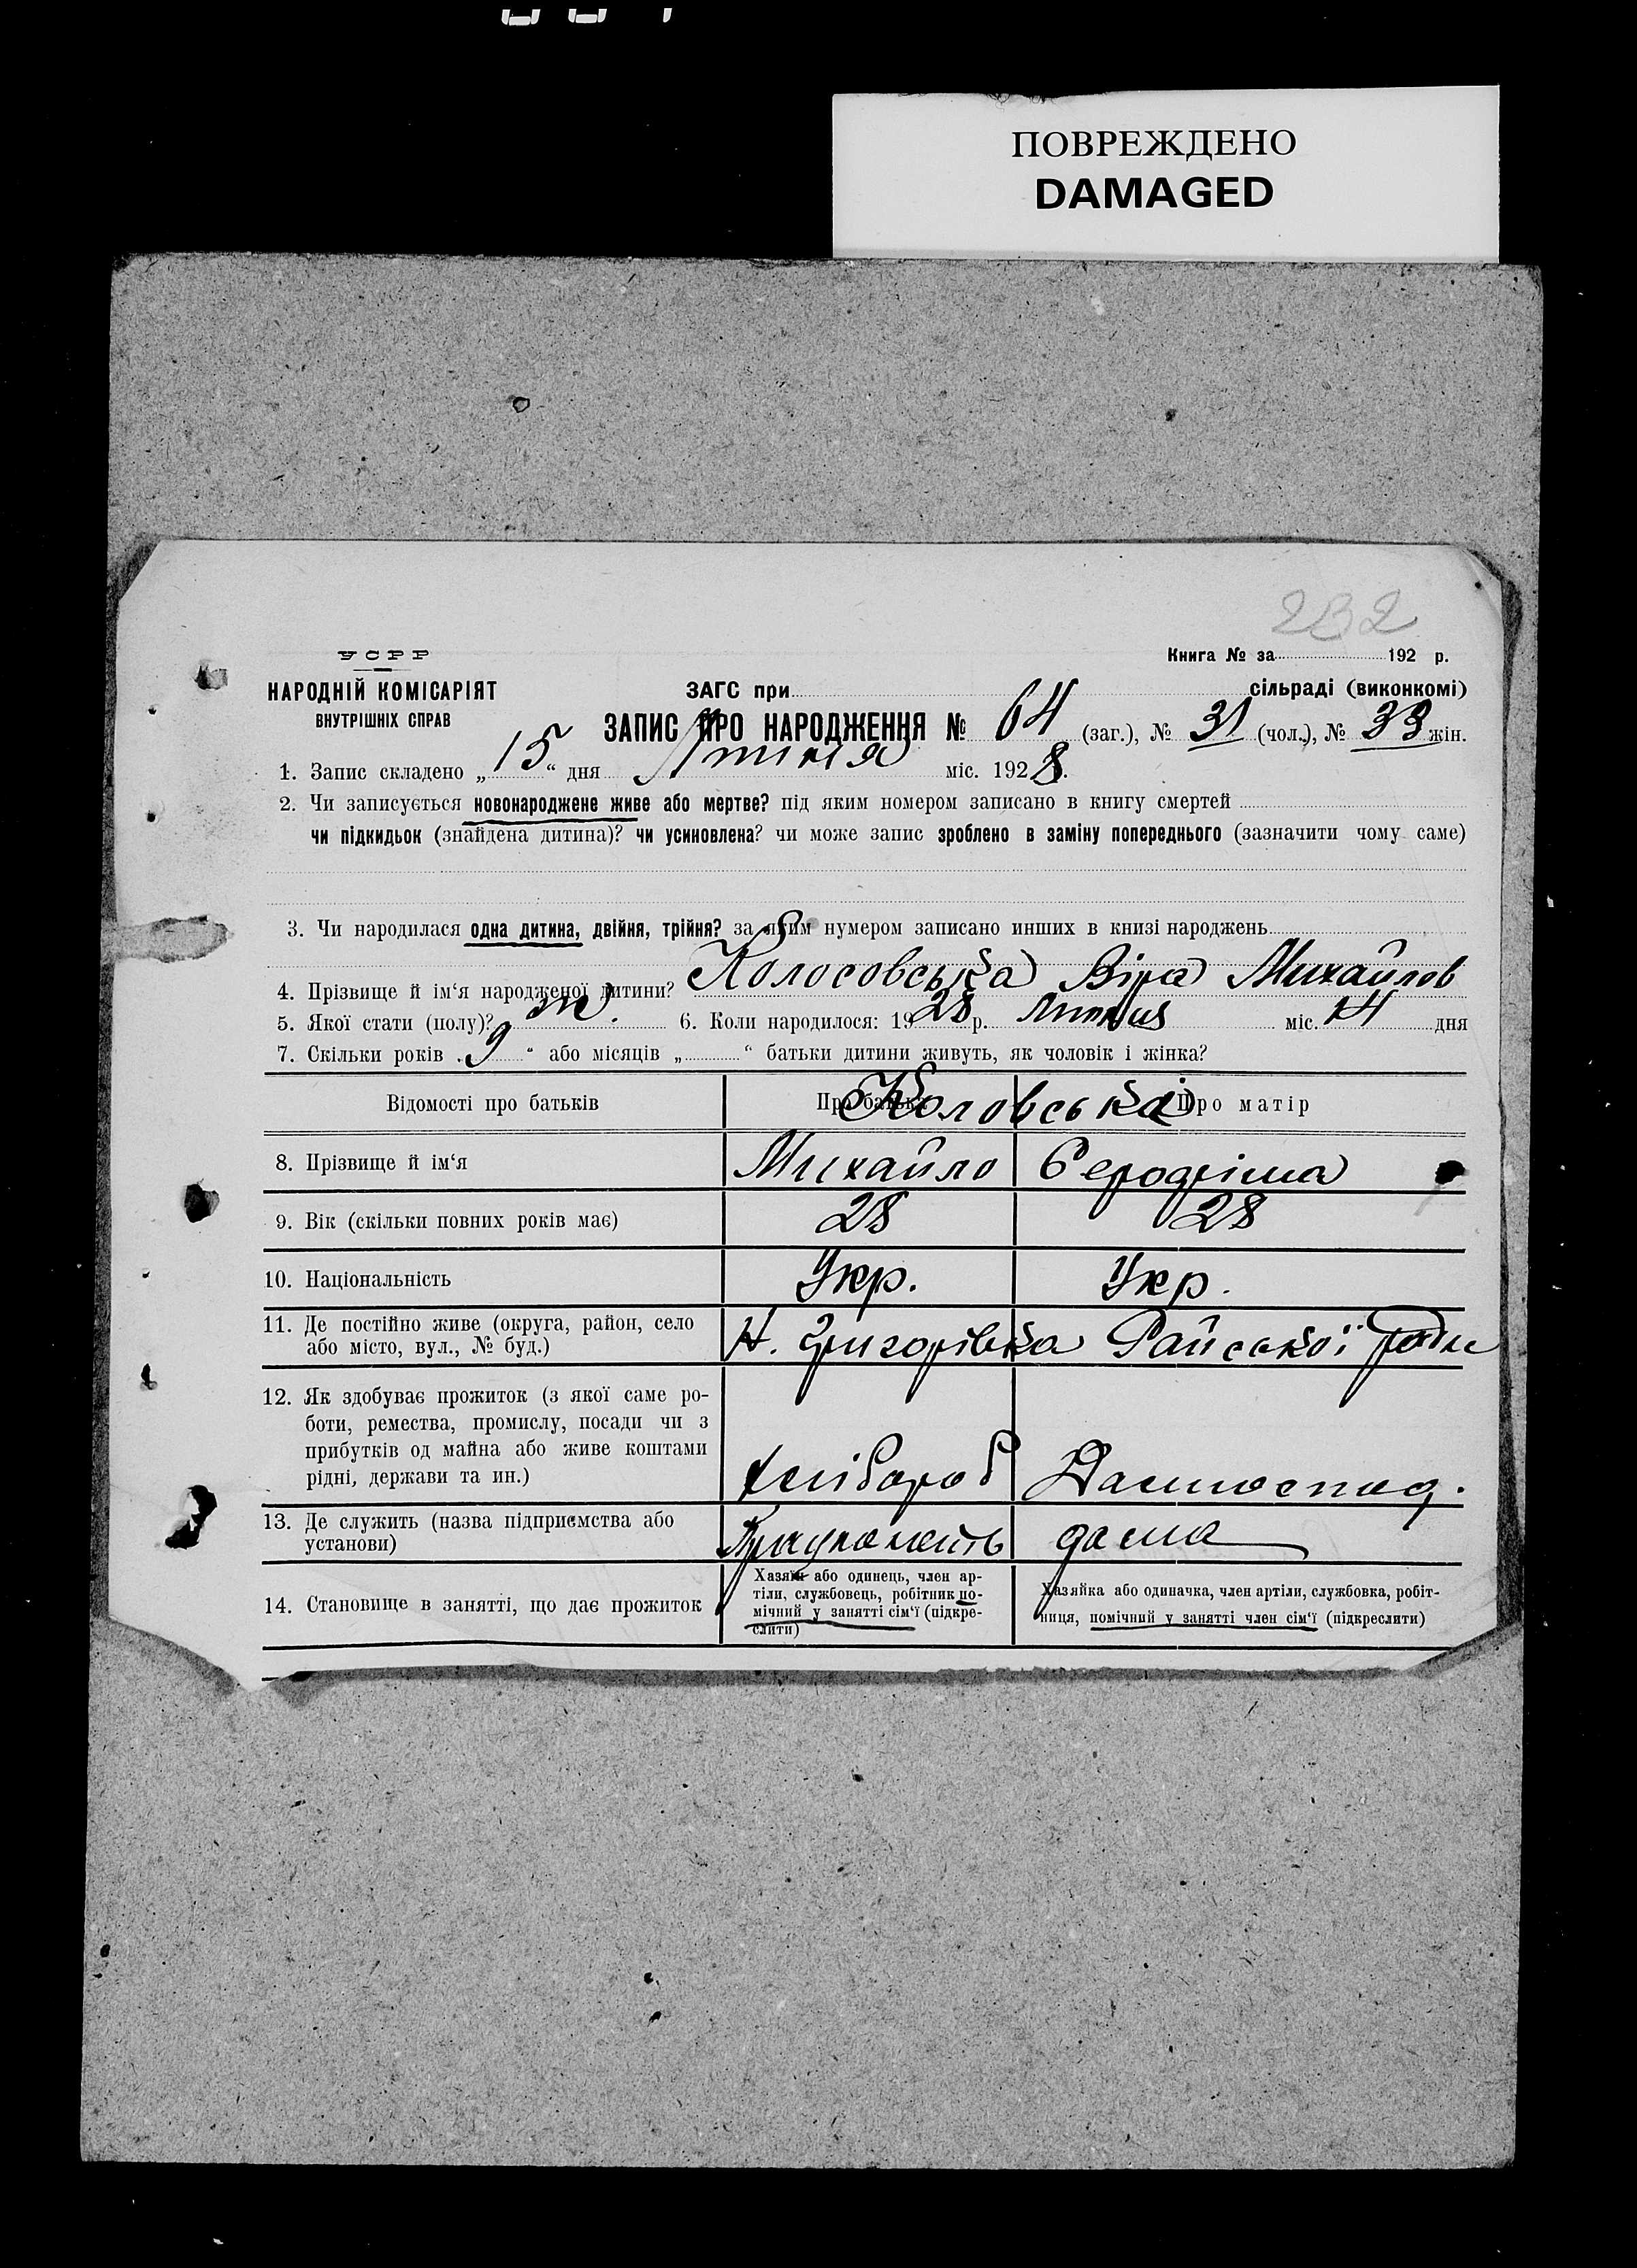 ПОВРЕЖДЕНО
DAMAGED
232
УСРР
Книга № за 192 р.
НАРОДНІЙ КОМІСАРІЯТ
ЗАГС при сільраді (виконкомі)
ВНУТРІШНІХ СПРАВ
ЗАПИС ПРО НАРОДЖЕННЯ № 64 (заг.), № 31 (чол.), № 33 жін.
1. Запис складено „ 15 “ дня Липня міс. 1928 р.
2. Чи записується новонароджене живе або мертве? під яким номером записано в книгу смертей
чи підкидьок (знайдена дитина)? чи усиновлена? чи може запис зроблено в заміну попереднього (зазначити чому саме)
3. Чи народилася одна дитина, двійня, трійня? за яким нумером записано инших в книзі народжень
4. Прізвище й ім‘я народженої дитини? Колосовська Віра Михайлов
5. Якої стати (полу)? ж. 6. Коли народилося: 1928 р. Липня міс. 14 дня
7. Скільки років „ 9 “ або місяців „ “ батьки дитини живуть, як чоловік і жінка?
Відомості про батьків Про батька Про матір
Коловські
8. Прізвище й ім‘я Михайло
9. Вік (скільки повних років має) 28 28
10. Національність Укр. Укр.
11. Де постійно живе (округа, район, село Н. Григорівка Райської Ради
або місто, вул., № буд.)
12. Як здобуває прожиток (з якої саме ро-
боти, ремества, промислу, посади чи з
прибутків од майна або живе коштами
рідні, держави та ин.) Хлібороб Домогоспод.
13. Де служить (назва підприємства або
установи) дома
14. Становище в занятті, що дає прожиток
Хазяїн або одинець, член ар-
тіли, службовець, робітник по-
мічний у занятті сім‘ї (підкре-
слити)
Хазяйка або одиначка, член артіли, службовка, робіт-
ниця, помічний у занятті член сім‘ї (підкреслити)